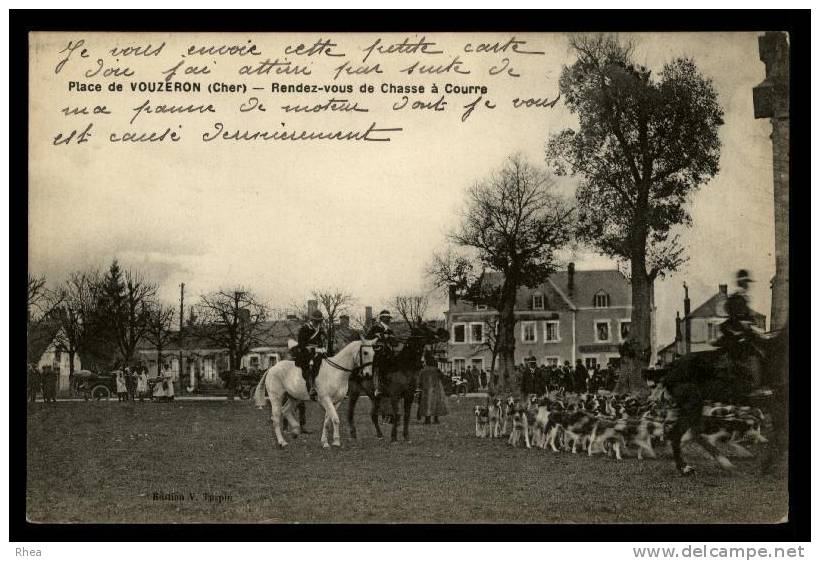 Je vous envoie cette petite carte
d'où j'ai atterri par suite de
Place de VOUZERON (Cher) — Rendez-vous de Chasse à Courre
ma panne de moteur dont je vous
est causé dernièrement
Edition V. Turpin
Rhea
www.delcampe.net